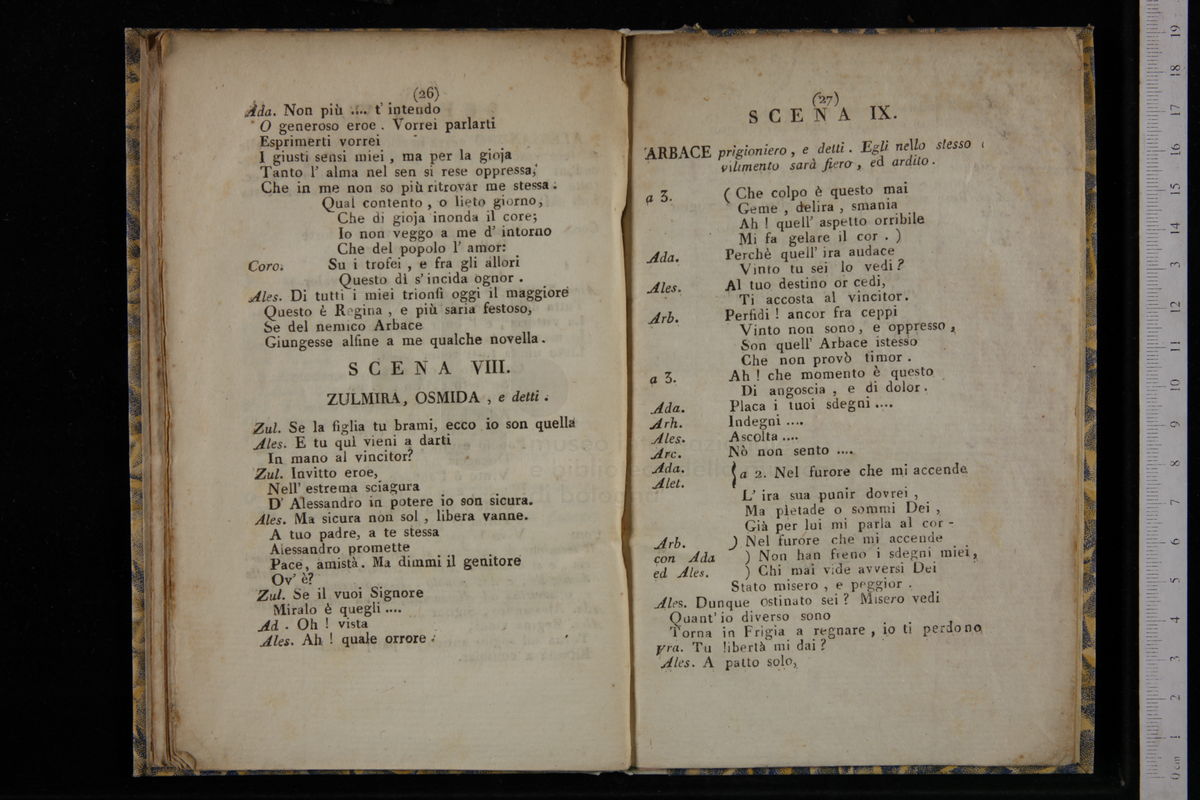 (26)
Ada. Non più .... t' intendo
O generoso eroe . Vorrei parlarti
Esprimerti vorrei
I giusti sensi miei , ma per la gioja
Tanto l' alma nel sen si rese oppressa,
Che in me non so più ritrovar me stessa .
Qual contento , o lieto giorno,
Che di gioja inonda il core;
Io non veggo a me d' intorno
Che del popolo l' amor:
Coro. Su i trofei , e fra gli allori
Questo dì s' incida ognor .
Ales. Di tutti i miei trionfi oggi il maggiore
Questo è Regina , e più saria festoso,
Se del nemico Arbace
Giungesse alfine a me qualche novella .
SCENA VIII.
ZULMIRA, OSMIDA , e detti .
Zul. Se la figlia tu brami, ecco io son quella
Ales. E tu quì vieni a darti
In mano al vincitor?
Zul. Invitto eroe,
Nell' estrema sciagura
D' Alessandro in potere io son sicura.
Ales. Ma sicura non sol , libera vanne.
A tuo padre, a te stessa
Alessandro promette
Pace, amistà. Ma dimmi il genitore
Ov' è?
Zul. Se il vuoi Signore
Miralo è quegli ....
Ad . Oh ! vista
Ales. Ah ! quale orrore .
(27)
SCENA IX.
ARBACE prigioniero , e detti . Egli nello stesso
vilimento sarà fiero , ed ardito .
a 3. ( Che colpo è questo mai
Geme , delira , smania
Ah ! quell' aspetto orribile
Mi fa gelare il cor . )
Ada. Perchè quell' ira audace
Vinto tu sei lo vedi ?
Ales. Al tuo destino or cedi,
Ti accosta al vincitor.
Arb. Perfidi ! ancor fra ceppi
Vinto non sono , e oppresso ,
Son quell' Arbace istesso
Che non provò timor .
a 3. Ah ! che momento è questo
Di angoscia , e di dolor .
Ada. Placa i tuoi sdegni ....
Arh. Indegni ....
Ales. Ascolta ....
Arc. Nò non sento ....
Ada.
Alet. { a 2. Nel furore che mi accende
L' ira sua punir dovrei ,
Ma pietade o sommi Dei ,
Già per lui mi parla al cor -
Arb. ) Nel furore che mi accende
con Ada ) Non han freno i sdegni miei,
ed Ales. ) Chi mai vide avversi Dei
Stato misero , e peggior .
Ales. Dunque ostinato sei ? Misero vedi
Quant' io diverso sono
Torna in Frigia a regnare , io ti perdono
Tu libertà mi dai ?
Ales. A patto solo,